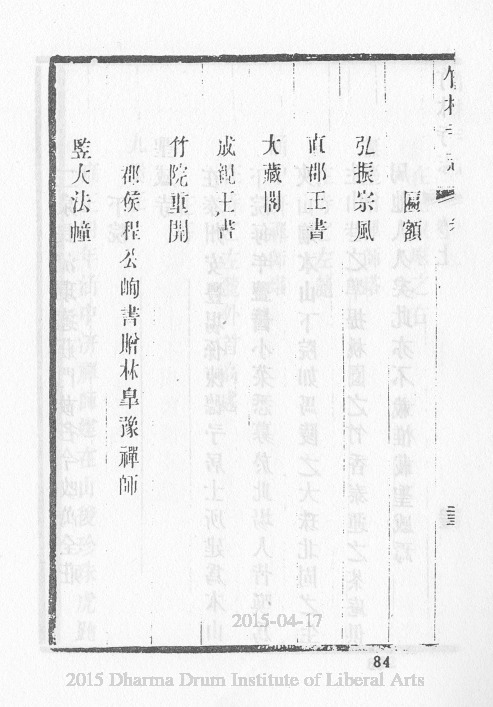 匾額
弘振宗風
直郡王書
大藏閣
成親王書
竹院重開
郡侯程公峋書贈林臯豫禪師
竪大法幢
2015-04-17
84
2015 Dharma Drum Institute of Liberal Arts